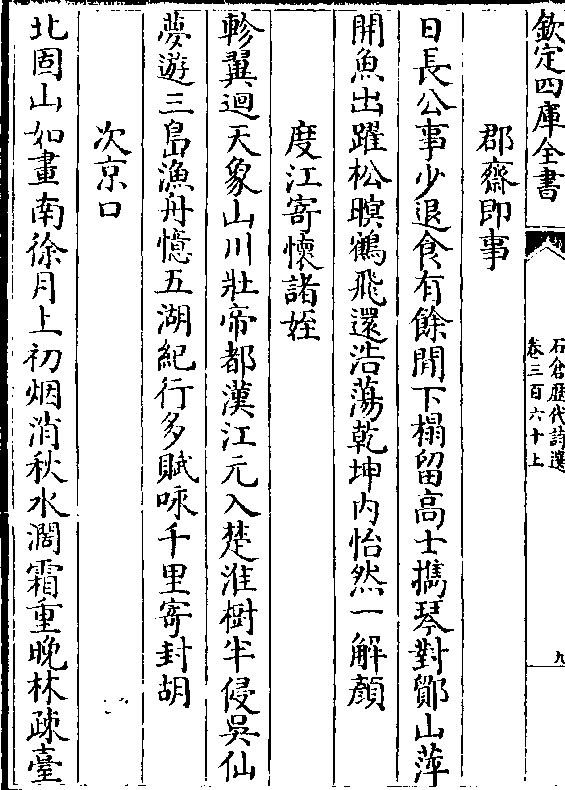 欽定四庫全書
石倉歴代詩選
卷三百六十上
九
郡齋即事
日長公事少退食有餘閒下榻留高士擕琴對鄮山萍
開魚出躍松暝鶴飛還浩蕩乾坤内怡然一解顔
度江寄懷諸姪
軫翼迴天象山川壯帝都漢江元入楚淮樹半侵吳仙
夢遊三島漁舟憶五湖紀行多賦咏千里寄封胡
次京口
北固山如畫南徐月上初烟消秋水濶霜重晚林疎臺